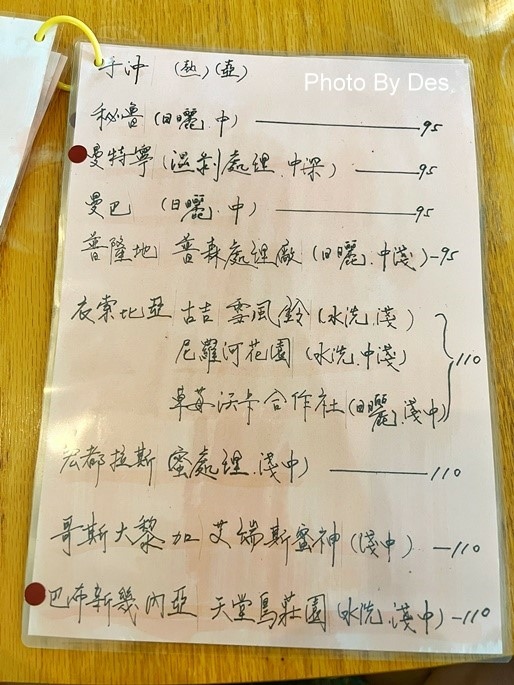 手沖 (熱)(壺)
Photo By Des
秘魯 (日曬.中) 95
曼特寧 (濕剝處理.中深) 95
曼巴 (日曬.中) 95
普隆地 普森處理廠 (日曬.中淺) -95
衣索比亞 古吉 雪風鈴 (水洗.淺)
尼羅河花園 (水洗.中淺) 110
草莓沃卡合作社 (日曬.淺中)
宏都拉斯 蜜處理.淺中) 110
哥斯大黎加 艾瑞斯蜜神 (淺中) -110
巴布新幾內亞 天堂鳥莊園 (水洗.淺中) -110